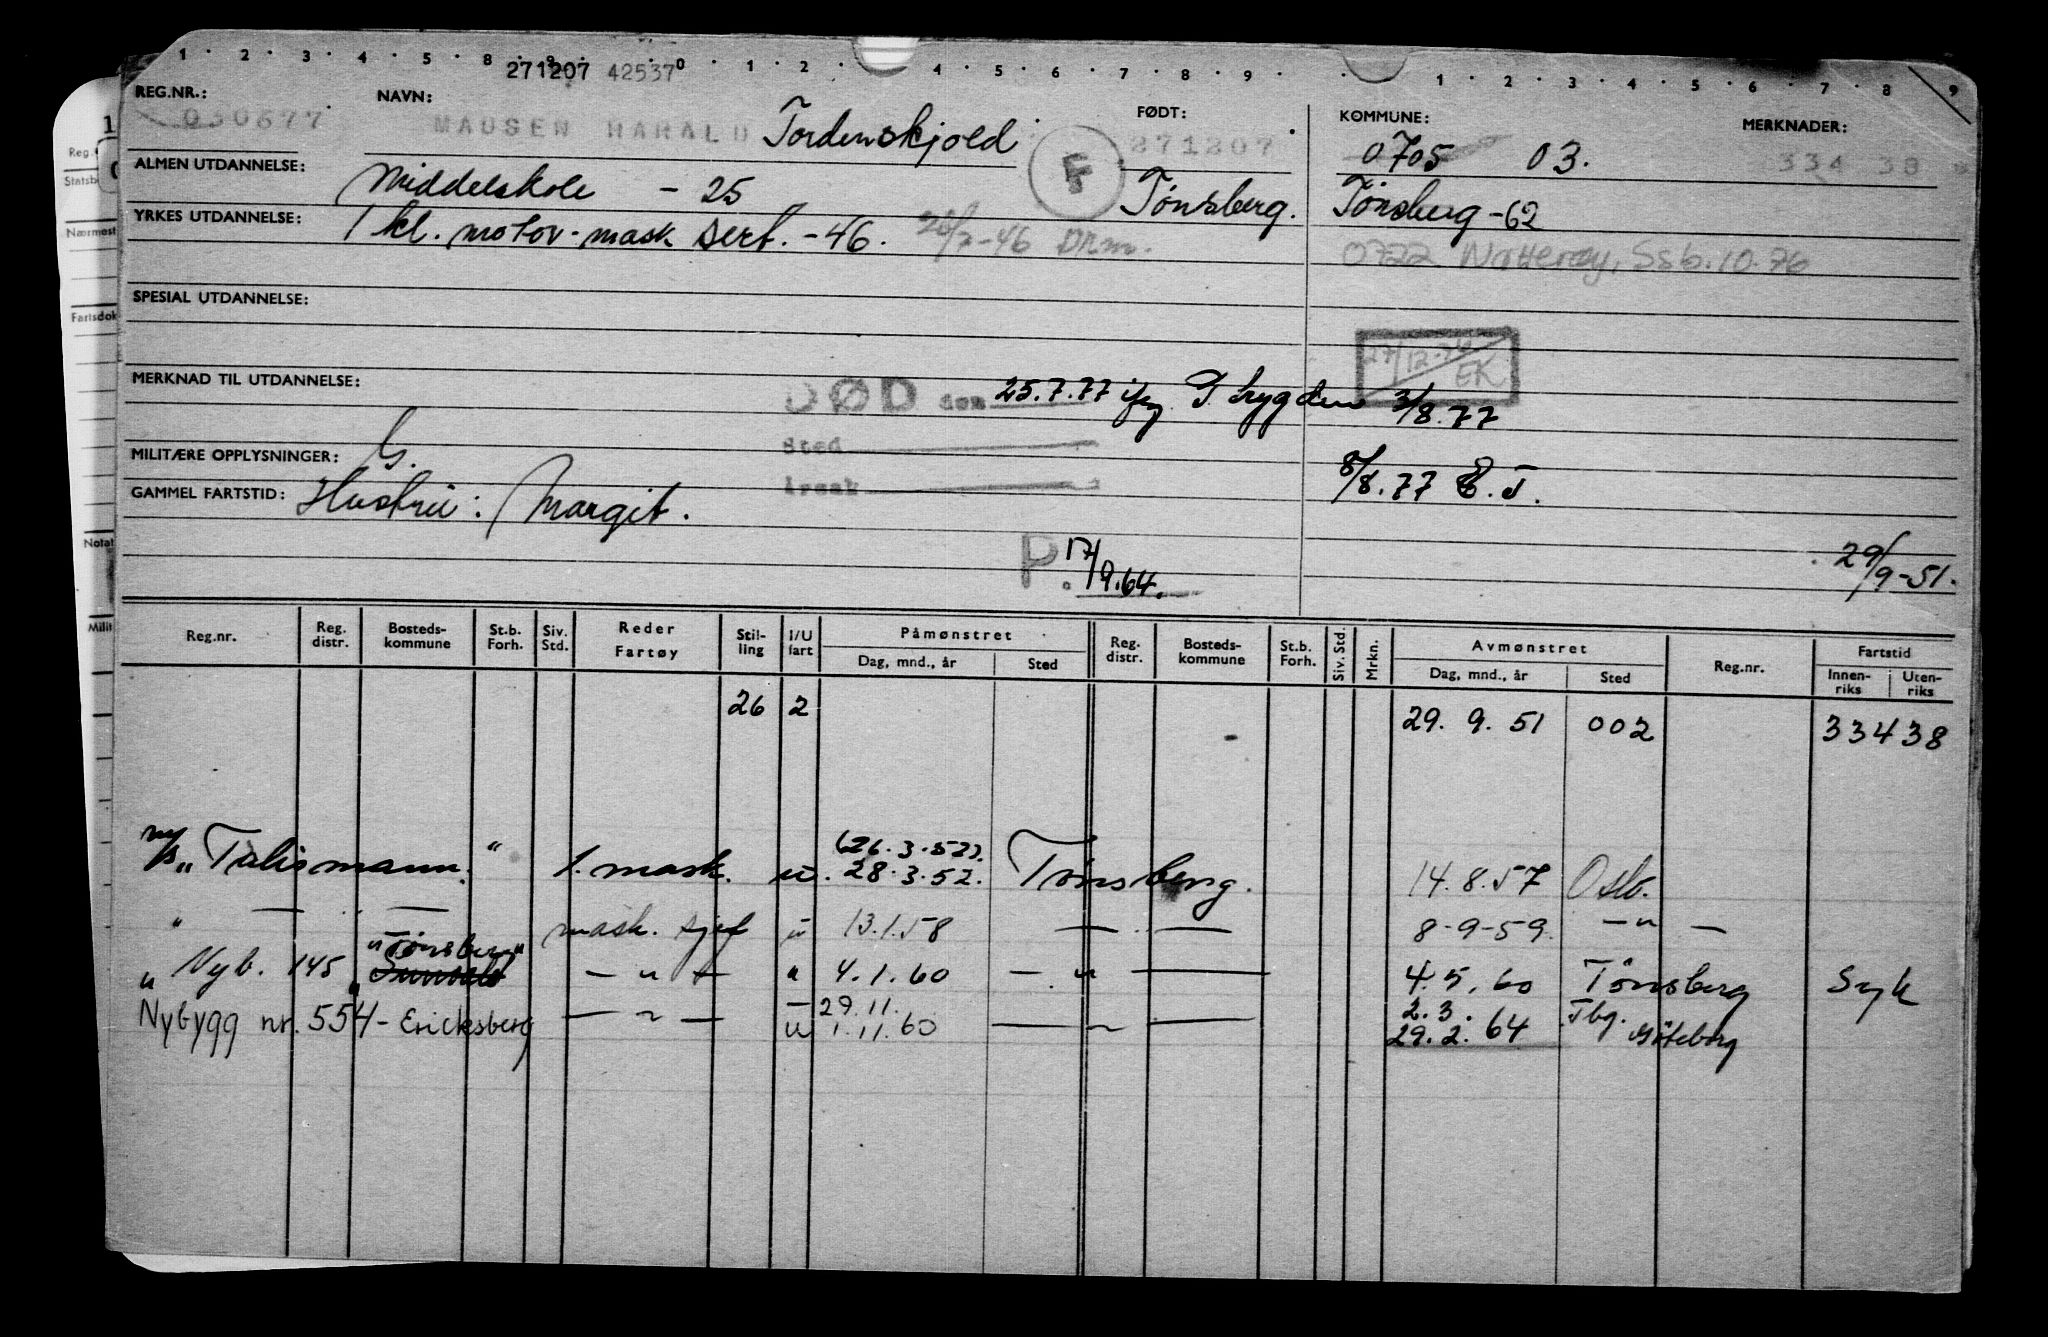 1 · 2 · 3 · 4 · 5 · 8 · 9 · 0 · 1 · 2 · 4 · 5 · 6 · 7 · 8 · 9 · 1 · 2 · 3 · 4 · 5 · 6 · 7 · 8 9
271207 42537
REG.NR.: NAVN: FØDT: KOMMUNE: MERKNADER:
030677 MAUSEN HARALD Tordenskjold 271207 0705 03. 334 38
ALMEN UTDANNELSE: Middelskole - 25 F Tønsberg. Tønsberg -62
YRKES UTDANNELSE: 1 kl. motor-mask sert. -46. 26/7-46 Drm. 0722 Nøtterøy, Ssb. 10.76
SPESIAL UTDANNELSE:
27/12-76 EK
MERKNAD TIL UTDANNELSE: DØD den 25.7.77 Trygden 3/8.77
Sted
MILITÆRE OPPLYSNINGER: G. 8/8.77 E.T.
Årsak
GAMMEL FARTSTID: Hustru: Margit.
P. 17/9.64. 29/9-51.
Reg.nr. Reg. distr. Bosteds-kommune St.b. Forh. Siv. Std. Reder Fartøy Stil-ling I/U fart Påmønstret Dag, mnd., år Sted Reg. distr. Bosteds-kommune St.b. Forh. Siv. Std. Mrkn. Avmønstret Dag, mnd., år Sted Reg.nr. Fartstid Innen-riks Uten-riks
26 2 29. 9. 51 002 334 38
m/s "Talismann." 1. mask. u. (26.3.52). 28.3.52. Tønsberg. 14.8.57 Oslo.
" — " — mask. sjef " 13.1.58 — " — 8-9-59. — " —
" Nyb. 145 "Tønsberg" — " — " 4.1.60 — " — 4.5.60 Tønsberg Syk
Nybygg nr. 554 - Ericksberg — " — u 29.11. 1.11.60 — " — 2.3. 29.2.64 Tbg. Göteborg